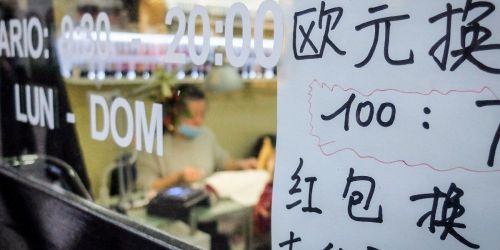 ARIO: 9:30 - 20:00
LUN - DOM
欧元换
100 :
红包换